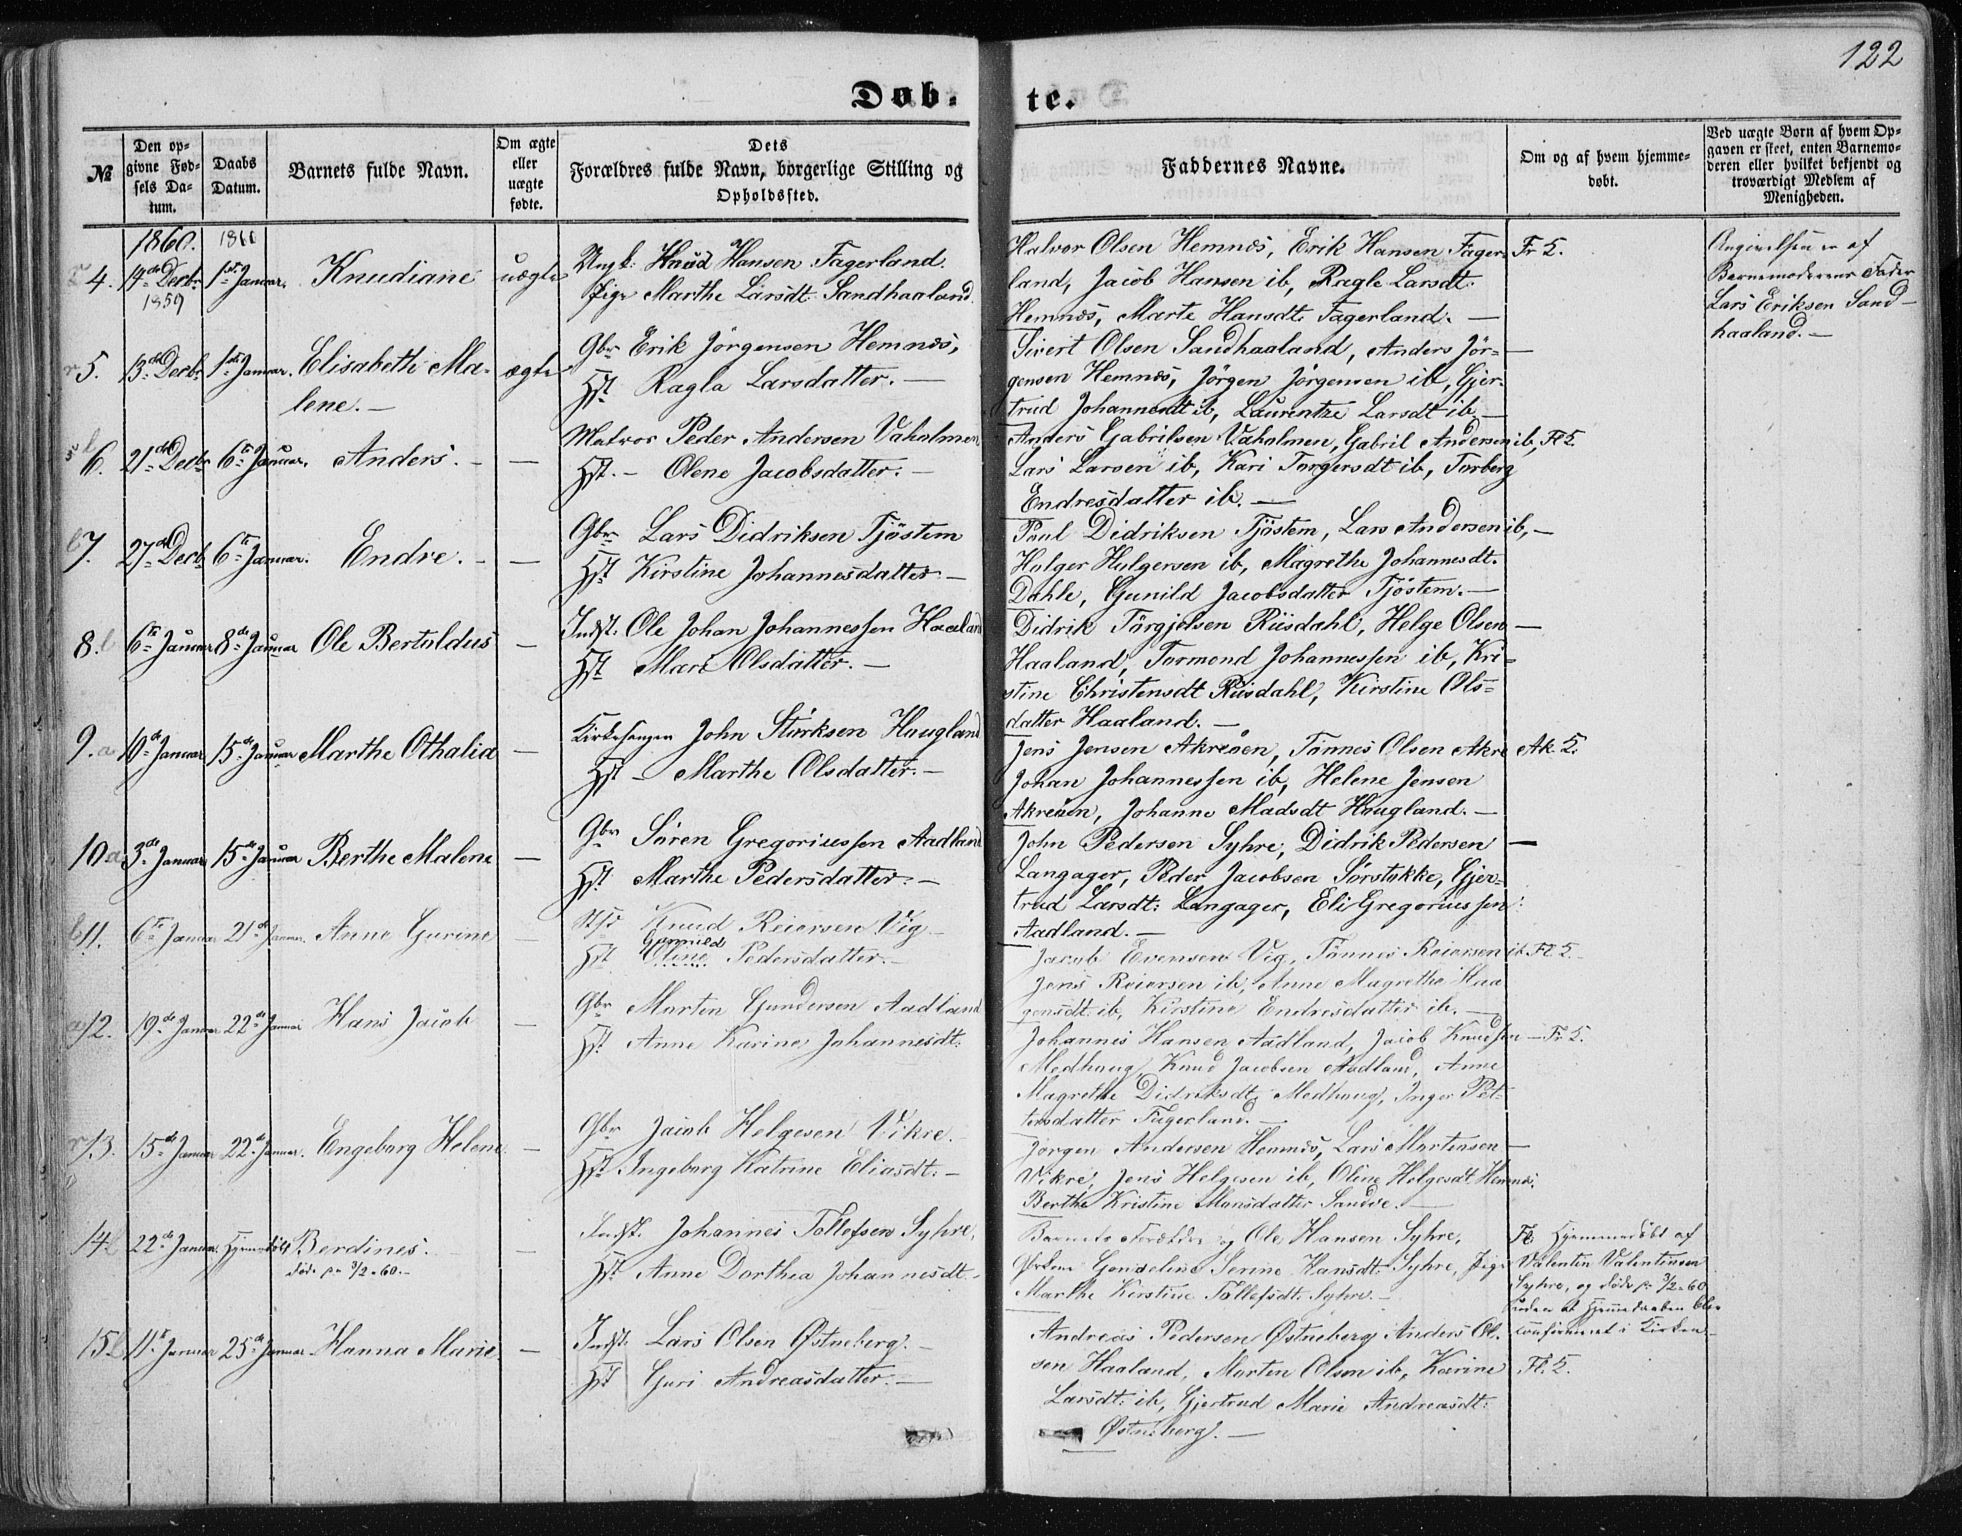 122
Døb-
te.
№
Den op-
givne Fød-
sels Da-
tum.
Daabs
Datum.
Barnets fulde Navn.
Om ægte
eller
uægte
fødte.
Dets
Forældres fulde Navn, borgerlige Stilling og
Opholdssted.
Faddernes Navne.
Om og af hvem hjemme-
døbt.
Ved uægte Børn af hvem Op-
gaven er skeet, enten Barnemo-
deren eller hvilket bekjendt og
troværdigt Medlem af
Menigheden.
1860.
4. 14de Decbr 1ste Januar. Knudiane uægte
1859
Ungk: Hansen Fagerland.
Pige Marthe Larsdt. Sandhaaland.
Halvor Olsen Hemnæs, Erik Hansen Fager-
land, Jacob Hansen ib, Ragle Larsdt.
Hemnæs, Marte Hansdt. Fagerland. —
Fr 5.
Angivelsen er af
Barnemoderens Fader
Lars Eriksen Sand-
haaland. —
r 5. 13de Decbr 1ste Januar. Elisabeth Ma-
lene. —
ægte
Gbr Erik Jörgensen Hemnæs,
Hst Ragla Larsdatter. —
Sivert Olsen Sandhaaland, Anders Jör-
gensen Hemnæs, Jörgen Jörgensen ib, Gjer-
trud Johannesdt ib, Laurentze Larsdt ib —
6. 21de Decbr 6te Januar. Anders. — —
Matros Peder Andersen Vaholmen
Hst. — Olene Jacobsdatter. —
Anders Gabrilsen Vaholmen, Gabril Andersen ib, Fl 5.
Lars Larsen ib, Kari Torgersdt ib, Torberg
Endresdatter ib. —
7. 27de Decb 6te Januar. Endre. — —
Gbr Lars Didriksen Tjöstem
Hst Kirstine Johannesdatter —
Poul Didriksen Tjöstem, Lars Andersen ib, —
Holger Hulgersen ib, Magrethe Johannesdt.
Dahle, Gunild Jacobsdatter Tjöstem. —
8. b 6te Januar 8de Januar Ole Bertuldus —
Indst. Ole Johan Johannessen Haaland
Hst Mari Olsdatter. —
Didrik Törgjelsen Riisdahl, Helge Olsen —
Haaland, Tormond Johannessen ib, Kri-
stine Christensdt Riisdahl, Kirstine Ols-
datter Haaland. —
9. a 10de Januar 15de Januar Marthe Othalia —
Kirkesanger John Störksen Haugland
Hst — Marthe Olsdatter. —
Jens Jensen Akreöen, Tönnes Olsen Akre Ak 5.
Johan Johannessen ib, Helene Jensen
Akreöen, Johanne Madsdt Haugland. —
10 a 3de Januar 15de Januar Berthe Malene —
Gbr Sören Gregoriussen Aadland
Hst Marthe Pedersdatter. —
John Pedersen Syhre, Didrik Pedersen —
Langager, Peder Jacobsen Sörstokke, Gjer-
trud Larsdt: Langager, Eli Gregoriussen
Aadland. —
b 11. 6te Januar 21de Januar. Anne Gurine —
Knud Reiersen Vig —
Gunnild
Hst Oline Pedersdatter. —
Jacob Evensen Vig, Tönnes Reiersen ib Fl 5.
Jens Reiersen ib, Anne Magrethe Haa
gensdt. ib, Kirstine Endresdatter ib. —
a 12. 19de Januar 22de Januar Hans Jacob —
Gbr Morten Gundersen Aadland
Hst Anne Karine Johannesdt:
Johannes Hansen Aadland, Jacob Knudsen — Fr 5.
Medhaug, Knud Jacobsen Aadland, Anne
Magrethe Didriksdt, Medhaug, Inger Pet-
tersdatter Fagerland. —
r 13. 15de Januar 22de Januar. Engeborg Helene. —
Gbr Jacob Helgesen Vikre.
Hst Ingeborg Katrine Eliasdt: —
Jörgen Andersen Hemnæs, Lars Martensen —
Vikre, Jens Helgesen ib, Oline Helgesdt Hemnæs.
Berthe Kristine Monsdatter Sandve. —
14. 22de Januar. Hjemmedöbt Berdines. —
döde pr 3/2-60. —
Indst. Johannes Tollefsen Syhre,
Hst Anne Dorthea Johannesdt. —
Barnets Forældre og Ole Hansen Syhre,
Gondeline Serine Hansdt: Syhre, Pige
Marthe Kirstine Tollefsdt. Syhre. —
Fl. Hjemmedöbt af
Valentin Valentinsen
Syhre, og döde pr 3/2-60
uden at Hjemmedaaben blev
confirmeret i Kirken —
15. 11te Januar 25de Januar — Hanna Marie. —
Indst: Lars Olsen Østneberg. —
Hst Guri Andreasdatter. —
Andreas Pedersen Østneberg, Anders Ol-
sen Haaland, Morten Olsen ib, Karine
Larsdt. ib, Gjertrud Marie Andreasdt:
Østneberg. —
Fl. 5.